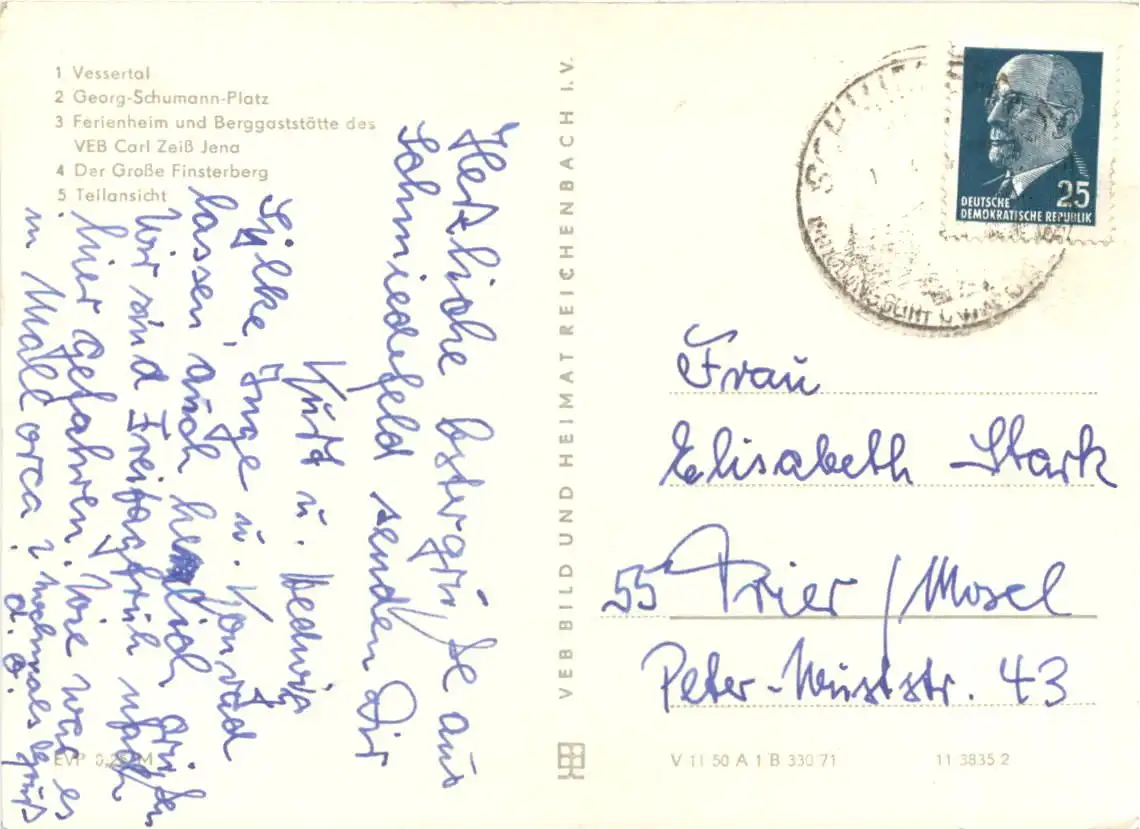 1 Vessertal
2 Georg-Schumann-Platz
3 Ferienheim und Berggaststätte des
VEB Carl Zeiß Jena
4 Der Große Finsterberg
5 Teilansicht
Herzliche Ostergrüße aus
Schmiedefeld senden Dir
Kurt u. Hedwig
Silke, Inge u. Konrad
lassen auch herzlich grüßen
Wir sind Freitagfrüh nach
hier gefahren. Wie war es
in Mallorca? nochmals Gruß
d. O.
EVP 0,25 M
VEB BILD UND HEIMAT REICHENBACH I.V.
DEUTSCHE
DEMOKRATISCHE REPUBLIK
25
Frau
Elisabeth Stark
55 Trier / Mosel
Peter-Wuststr. 43
V 11 50 A 1 B 330 71
11 3835 2